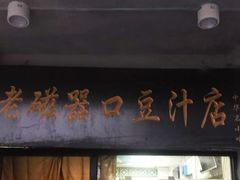 老磁器口豆汁店